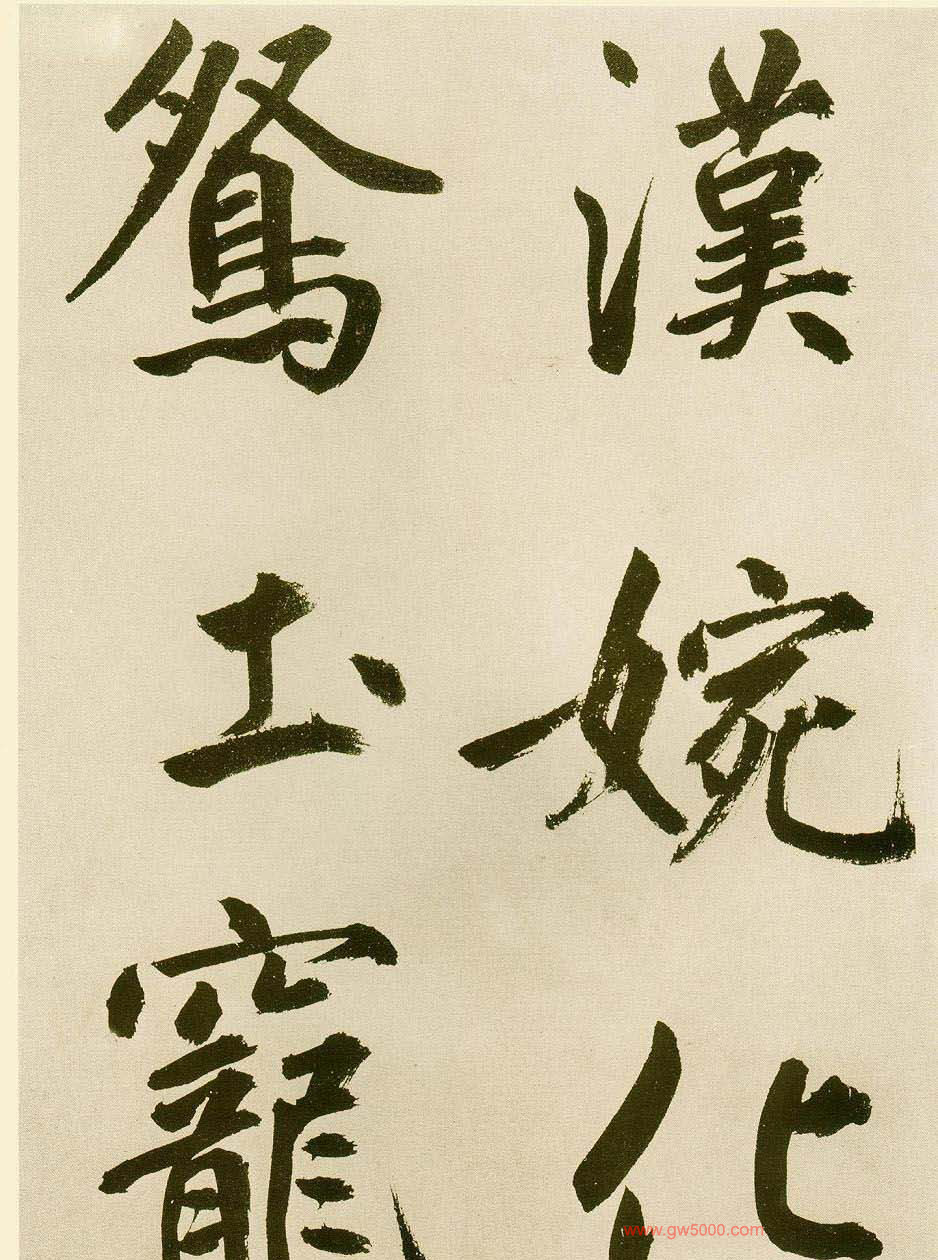 漢婉化
鴛土竉
www.gw5000.com